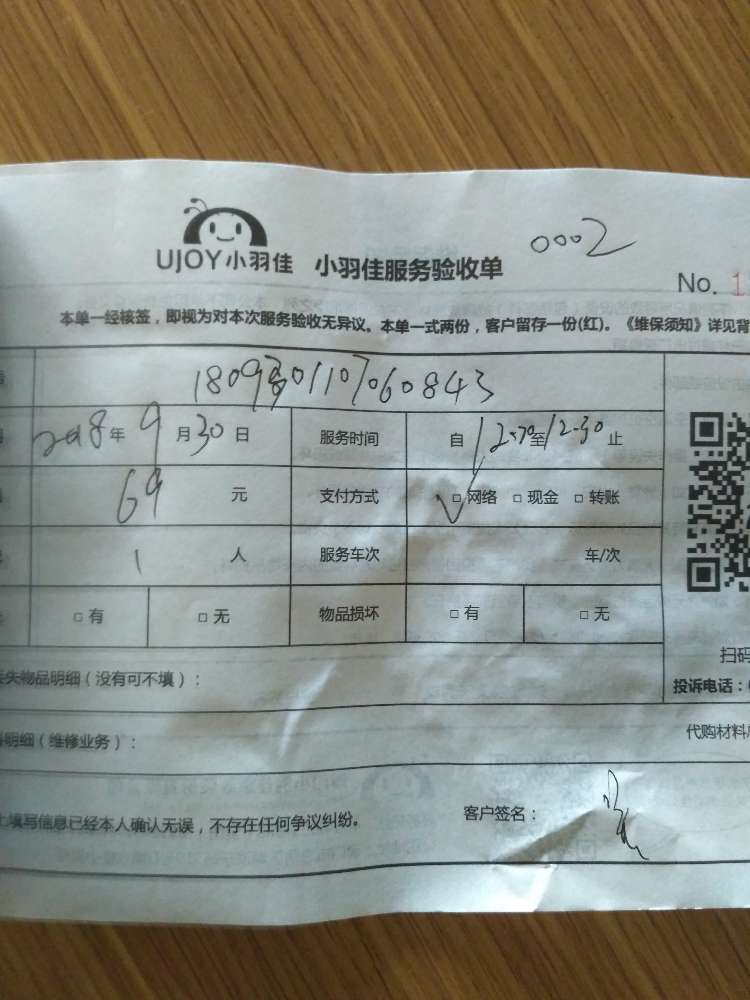 0002
UJOY小羽佳 小羽佳服务验收单
No. 1
本单一经核签，即视为对本次服务验收无异议。本单一式两份，客户留存一份(红)。《维保须知》详见背
2018年9月30日 服务时间 自 至12-30止
69元 支付方式 ✓□网络 □现金 □转账
1人 服务车次 车/次
□有 □无 物品损坏 □有 □无
扫码
失物品明细（没有可不填）：
投诉电话：
明细（维修业务）：
代购材料
填写信息已经本人确认无误，不存在任何争议纠纷。 客户签名：